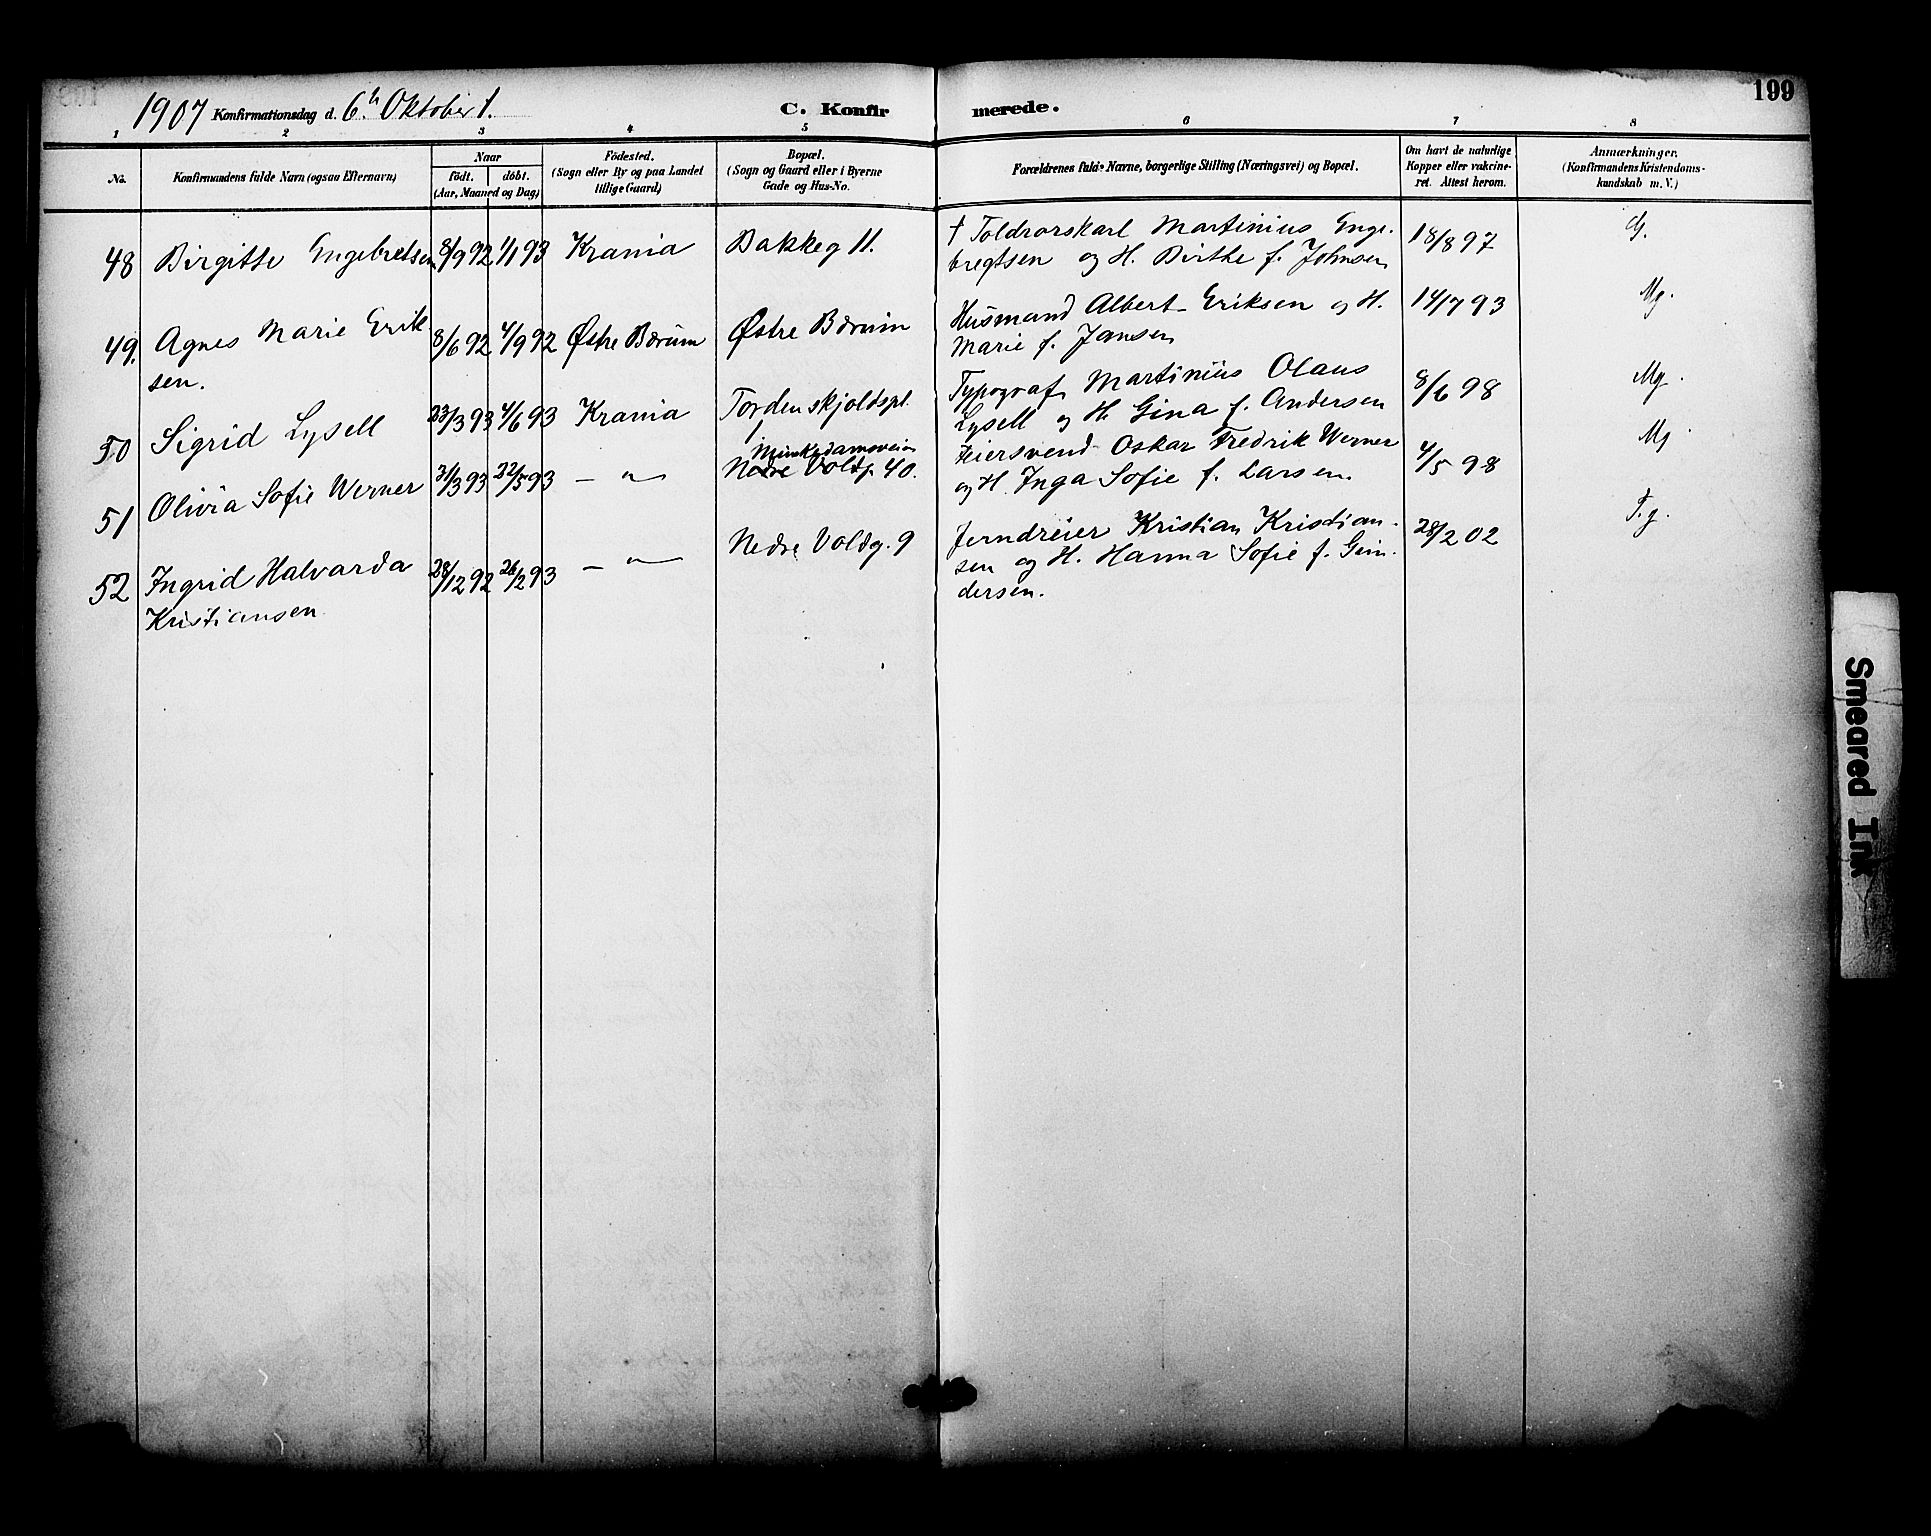 199
1907 Konfirmationsdag d. 6. Oktober
C. Konfirmerede.
1 2 3 4 5 6 7 8
No.
Konfirmandens fulde Navn (ogsaa Efternavn)
Naar
födt. döbt.
(Aar, Maaned og Dag)
Födested.
(Sogn eller By og paa Landet
tillige Gaard)
Bopæl.
(Sogn og Gaard eller i Byerne
Gade og Hus-No.
Forældrenes fulde Navne, borgerlige Stilling (Næringsvei) og Bopæl.
Om havt de naturlige
Kopper eller vakcine-
ret. Attest herom.
Anmærkninger.
(Konfirmandens Kristendoms-
kundskab m. V.)
48 Birgitte Engebretsen 8/9 92 1/1 93 Krania Bakkeg 11. † Toldrorskarl Martinius Enge- 18/8 97 G.
bregtsen og H. Birthe f. Johnsen
49. Agnes Marie Erik 8/6 92 4/9 92 Østre Bærum Østre Bærum Husmand Albert Eriksen og H. 14/7 93 Mg.
sen. Marie f. Jansen
50 Sigrid Lysell 23/3 93 4/6 93 Krania Tordenskjoldspl. Typograf Martinius Olaus 8/6 98 Mg.
1 Lysell og H. Gina f. Andersen
Munkedamsveien
51 Olivia Sofie Werner 31/3 93 22/5 93 — " — Nedre Voldg. 40. Feiersvend Oskar Fredrik Werner 4/5 98 Mg
og H. Inga Sofie f. Larsen.
52 Ingrid Halvarda 28/12 92 26/2 93 — " — Nedre Voldg. 9 Jerndreier Kristian Kristian- 28/2 02 T.g.
Kristiansen sen og H. Hanna Sofie f. Gun-
dersen.
Smeared Ink